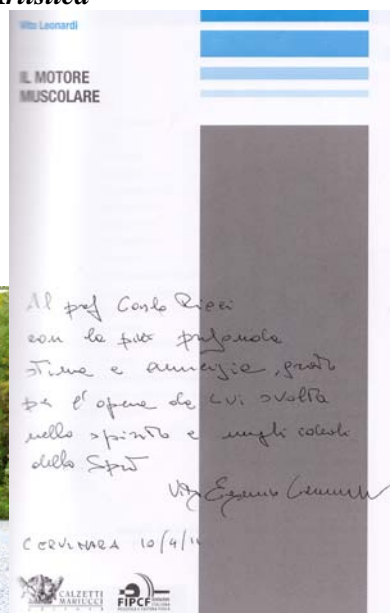 Artistica
Vito Leonardi
IL MOTORE
MUSCOLARE
Al prof Carlo Ricci
con la più profonda
stima e amicizia, grato
per l'opera da lui svolta
nello spirito e negli ideali
dello Sport
CERVINARA 10/4/1
CALZETTI
MARIUCCI
FIPCF